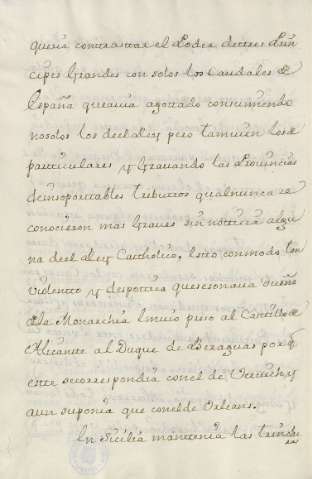 queria contrarrestar el Poder de tres Prin
cipes Grandes con solos los Caudales de
España que avia agotado consumiendo
no solos los del Rey pero tamvien los de
particulares y Gravando las Provincias
de insoportables tributos qual nunca se
conocieron mas Graves sin noticia algu
na del Rey Catholico, Esto con modo tan
violento y despotico que se sonaria dueño
de la Monarchia Imvio preso al Castillo de
Alicante al Duque de Veraguas por q
este se correspondia con el de Uceda y
aun suponia que con el de Orleans.
En Sicilia mantenia las tiendas